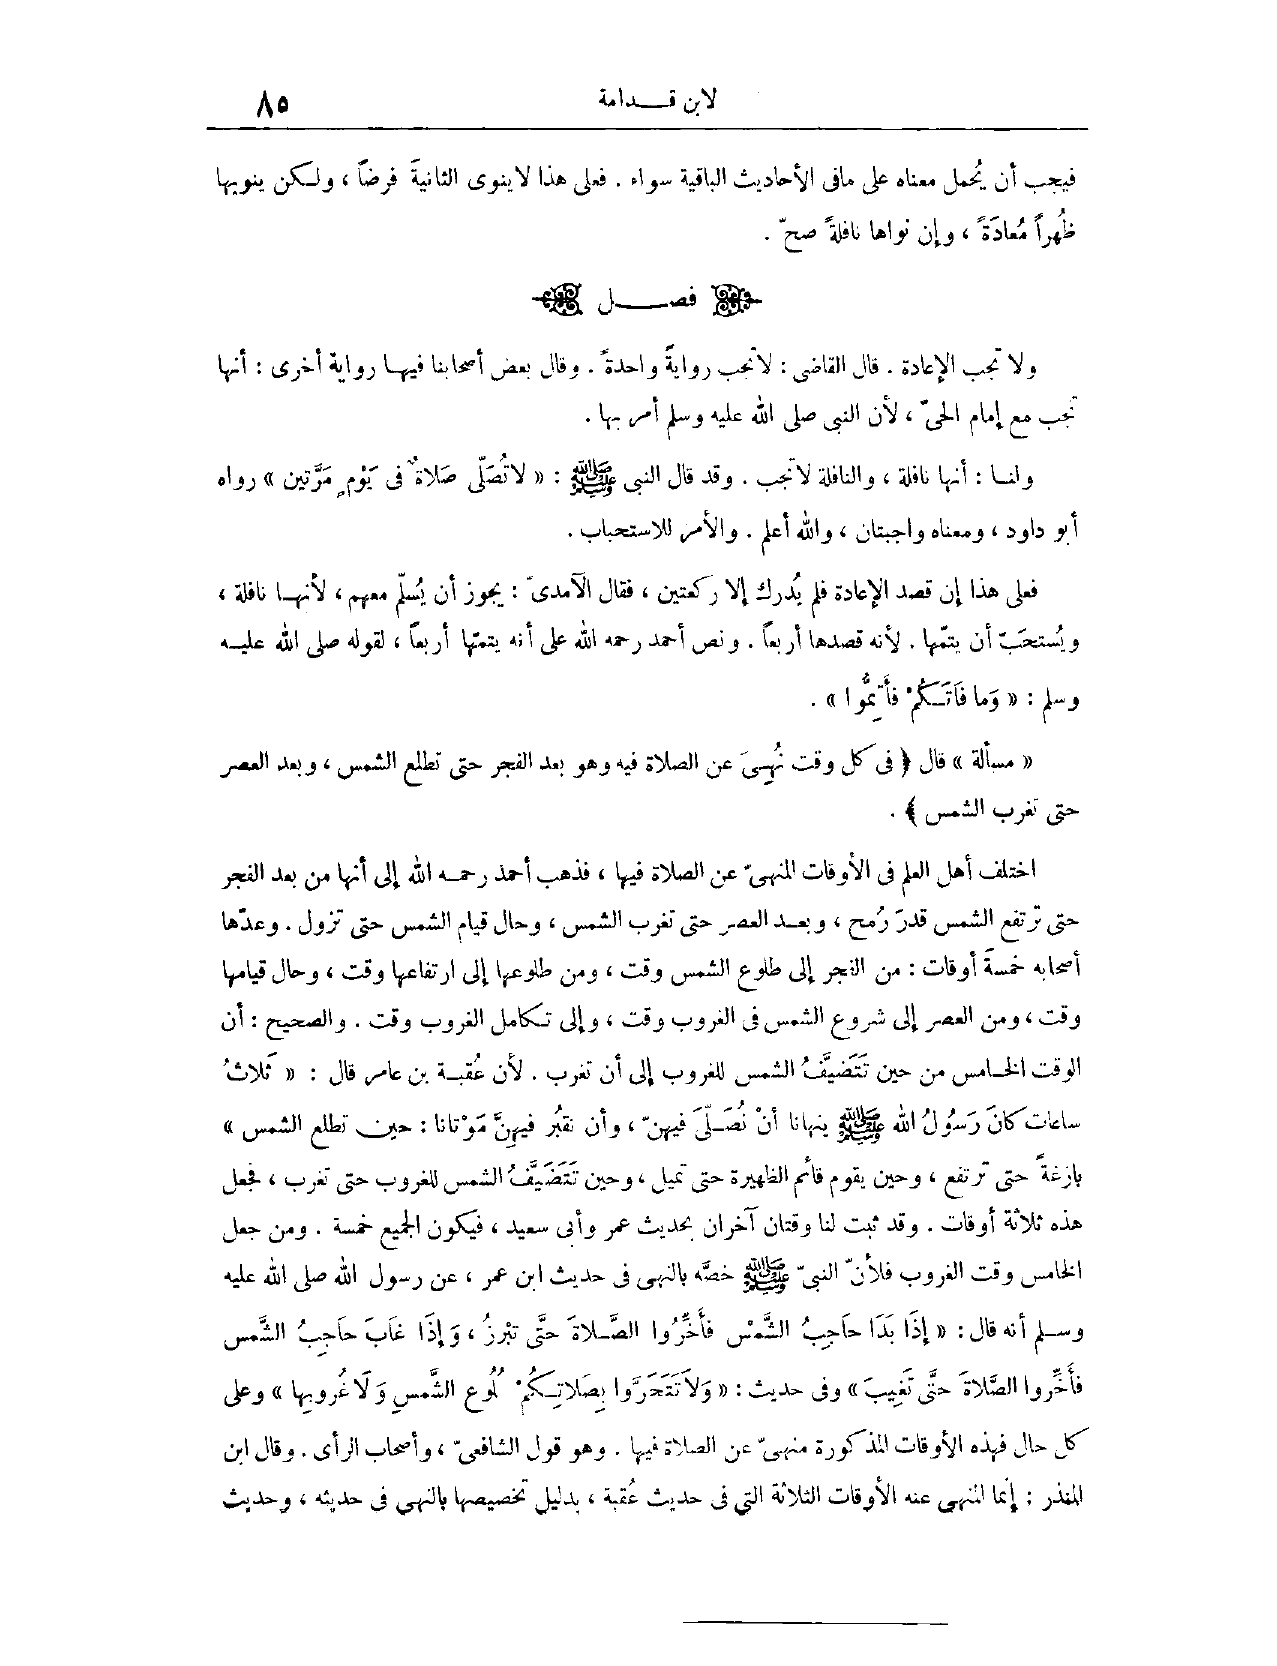 لابن قـــدامة ٨٥
فيجب أن يُحمل معناه على مافى الأحاديث الباقية سواء . فعلى هذا لاينوى الثانيةَ فرضاً ، ولـكن ينويها
ظُهراً مُعادَةً ، وإن نواها نافلةً صحّ .
فصـــل
ولا تجب الإعادة . قال القاضى : لاتجب روايةً واحدةً . وقال بعض أصحابنا فيهـا رواية أخرى : أنها
تجب مع إمام الحىّ ، لأن النبى صلى الله عليه وسلم أمر بها .
ولنـا : أنها نافلة ، والنافلة لاتجب . وقد قال النبى ﷺ : « لاتُصَلّى صَلاةٌ فى يَوْمٍ مَرَّتين » رواه
أبو داود ، ومعناه واجبتان ، والله أعلم . والأمر للاستحباب .
فعلى هذا إن قصد الإعادة فلم يُدرك إلا ركعتين ، فقال الآمدىّ : يجوز أن يُسلّم معهم ، لأنهـا نافلة ،
ويُستحَبّ أن يتمّها . لأنه قصدها أربعاً . ونص أحمد رحمه الله على أنه يتمتها أربعاً ، لقوله صلى الله عليـه
وسلم : « وَما فَاتَـكُمْ فأَتِمُّوا » .
« مسألة » قال ﴿ فى كل وقت نُهِـىَ عن الصلاة فيه وهو بعد الفجر حتى تطلع الشمس ، وبعد العصر
حتى تغرب الشمس ﴾ .
اختلف أهل العلم فى الأوقات المنهىّ عن الصلاة فيها ، فذهب أحمد رحمـه الله إلى أنها من بعد الفجر
حتى ترتفع الشمس قدرَ رُمح ، وبعـد العصر حتى تغرب الشمس ، وحال قيام الشمس حتى تزول . وعدّها
أصحابه خمسةَ أوقات : من الفجر إلى طلوع الشمس وقت ، ومن طلوعها إلى ارتفاعها وقت ، وحال قيامها
وقت ، ومن العصر إلى شروع الشمس فى الغروب وقت ، وإلى تـكامل الغروب وقت . والصحيح : أن
الوقت الخـامس من حين تَتَضيَّفُ الشمس للغروب إلى أن تغرب . لأن عُقبـة بن عامر قال : « ثَلاثُ
ساعات كانَ رَسُولُ الله ﷺ ينهانا أنْ نُصَـلّىَ فيهنّ ، وأن نقبُر فيهِنَّ مَوْتانا : حين تطلع الشمس »
بازغةً حتى ترتفع ، وحين يقوم قائم الظهيرة حتى تميل ، وحين تَتَضَيَّفُ الشمس للغروب حتى تغرب ، فجعل
هذه ثلاثة أوقات . وقد ثبت لنا وقتان آخران بحديث عمر وأبى سعيد ، فيكون الجميع خمسة . ومن جعل
الخامس وقت الغروب فلأنّ النبىّ ﷺ خصّه بالنهى فى حديث ابن عمر ، عن رسول الله صلى الله عليه
وسـلم أنه قال : « إذَا بَدَا حاجِبُ الشَّمْس فأخِّرُوا الصَّـلاةَ حتَّى تبْرزُ ، وَإذَا غَابَ حَاجِبُ الشَّمس
فأَخِّروا الصَّلاةَ حتَّى تَغِيبَ » وفى حديث : « وَلاَتَتَحَرَّوا بِصَلاتِـكُمْ طُلُوع الشَّمسِ وَلَا غُروبها » وعلى
كل حال فهذه الأوقات المذكورة منهىّ عن الصلاة فيها . وهو قول الشافعىّ ، وأصحاب الرأى . وقال ابن
المنذر : إنما المنهى عنه الأوقات الثلاثة التي فى حديث عُقبة ، بدليل تخصيصها بالنهى فى حديثه ، وحديث